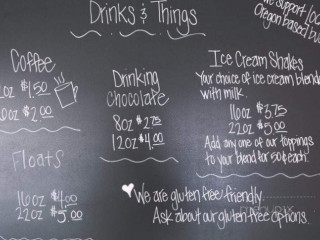 Drinks & Things
we support loc
Oregon based bus
Coffee
oz $1.50
oz $2.00
Drinking
Chocolate
8oz $2.75
12oz $4.00
Ice Cream Shakes
Your choice of ice cream blende
with milk.
16oz $3.75
22oz $5.00
Add any one of our toppings
to your blend for 50¢ each.
Floats
16oz $4.00
22oz $5.00
We are gluten free friendly
Ask about our gluten free options.